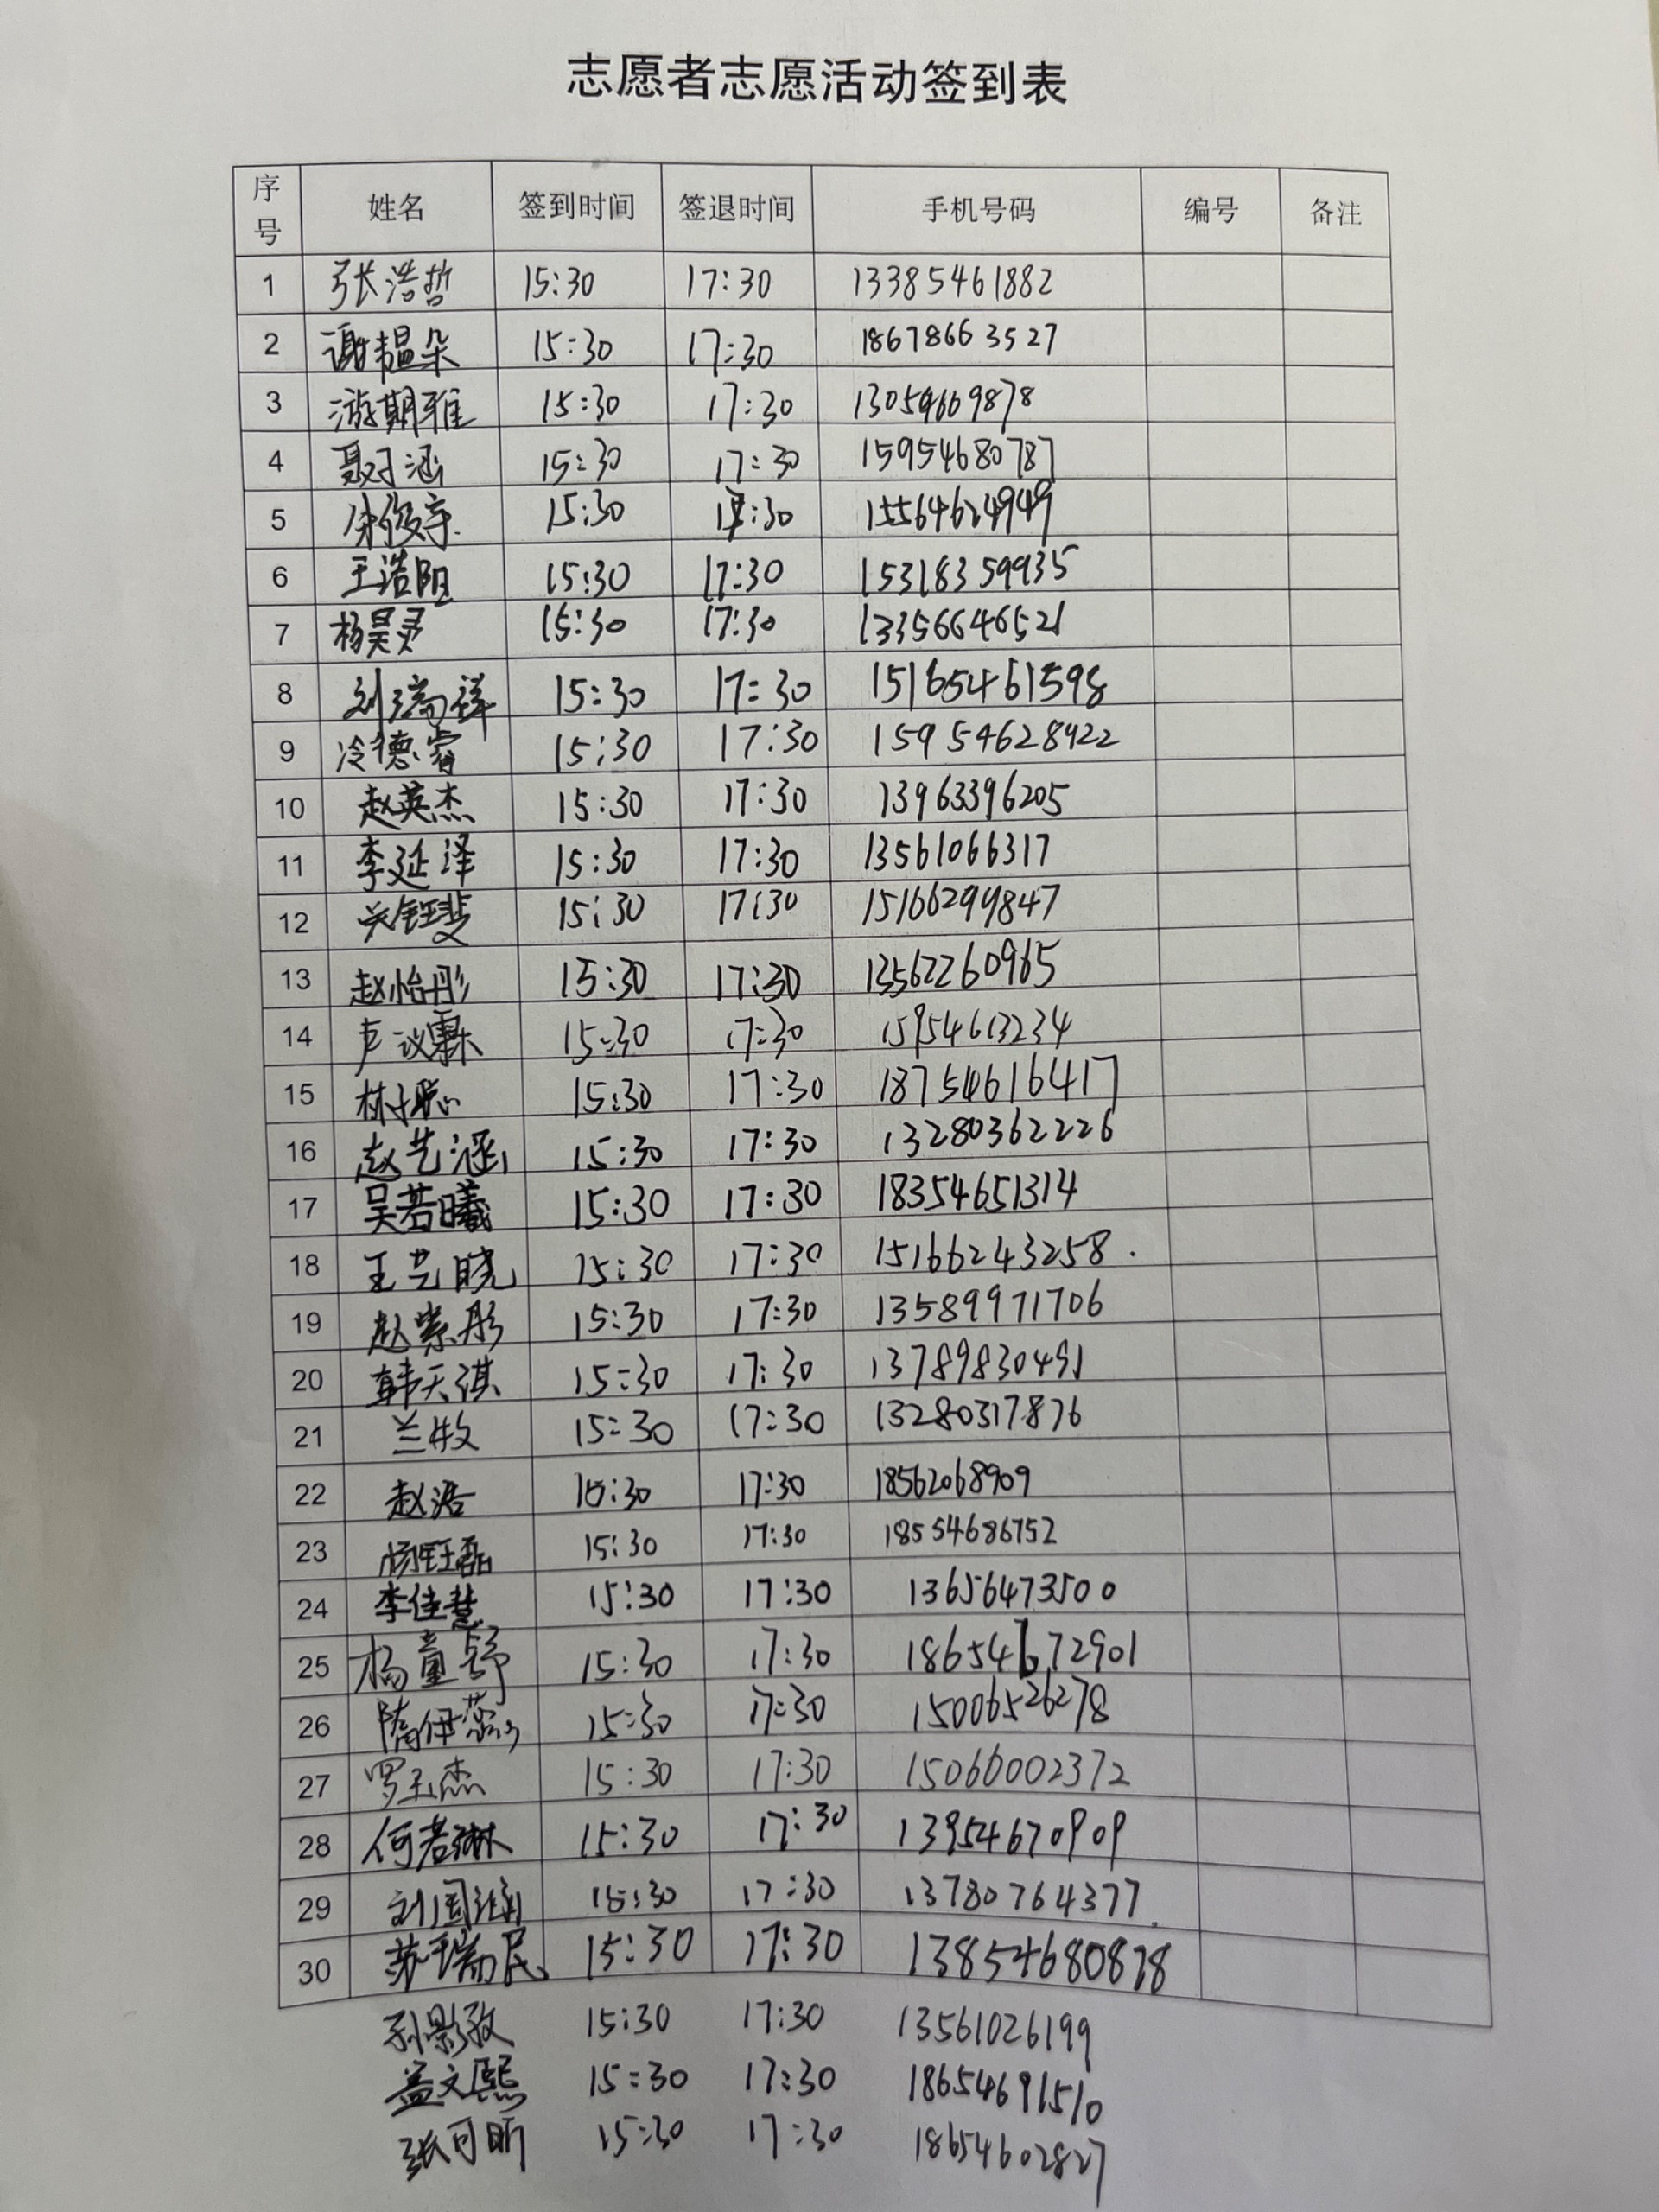 志愿者志愿活动签到表
序号 姓名 签到时间 签退时间 手机号码 编号 备注
1 张浩哲 15:30 17:30 13385461882
2 谢韫朵 15:30 17:30 18678663527
3 游期雅 15:30 17:30 13054669878
4 聂于涵 15:30 17:30 15954680787
5 15:30 17:30 15564624949
6 王浩阳 15:30 17:30 15318359935
7 杨昊灵 15:30 17:30 13356646521
8 刘瑞祥 15:30 17:30 15165461598
9 冷德睿 15:30 17:30 15954628922
10 赵英杰 15:30 17:30 13963396205
11 李延泽 15:30 17:30 13561066317
12 15:30 17:30 15166299847
13 赵怡彤 15:30 17:30 13562260965
14 卢议霖 15:30 17:30 15954613234
15 林子聪 15:30 17:30 18754616417
16 赵艺涵 15:30 17:30 13280362226
17 吴若曦 15:30 17:30 18354651314
18 王艺晓 15:30 17:30 15166243258
19 赵紫彤 15:30 17:30 13589971706
20 韩天淇 15:30 17:30 13789830491
21 兰牧 15:30 17:30 13280317876
22 赵浩 15:30 17:30 18562068909
23 杨钰磊 15:30 17:30 18554686752
24 李佳慧 15:30 17:30 13656473500
25 杨童舒 15:30 17:30 18654672901
26 隋伊蕊 15:30 17:30 15006526278
27 罗玉杰 15:30 17:30 15066002372
28 何若琳 15:30 17:30 13954670909
29 刘国涵 15:30 17:30 13780764377
30 苏瑞民 15:30 17:30 13854680878
孙影孜 15:30 17:30 13561026199
盖文熙 15:30 17:30 18654691510
张可昕 15:30 17:30 18654602827